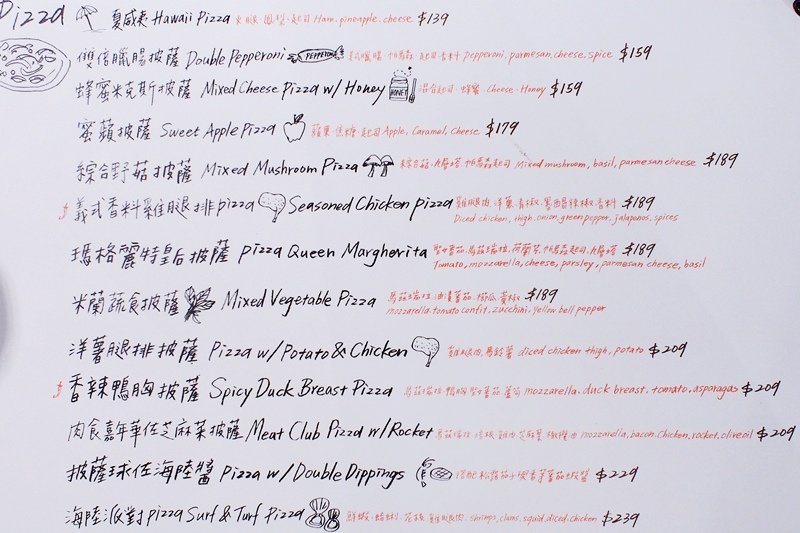 Pizza 夏威夷 Hawaii Pizza 火腿·鳳梨·起司 Ham, pineapple, cheese $139
雙倍臘腸披薩 Double Pepperoni PEPPERONI 美式臘腸·帕瑪森·起司·香料 pepperoni, parmesan, cheese, spice $159
蜂蜜米克斯披薩 Mixed Cheese Pizza w/ Honey HONEY 混合起司·蜂蜜·Cheese·Honey $159
蜜蘋披薩 Sweet Apple Pizza 蘋果·焦糖·起司 Apple, Caramel, Cheese $179
綜合野菇披薩 Mixed Mushroom Pizza 綜合菇·九層塔·帕瑪森起司 Mixed mushroom, basil, parmesan cheese $189
義式香料雞腿排pizza Seasoned Chicken pizza 雞腿肉·洋蔥·青椒·墨西哥辣椒·香料 $189
Diced chicken, thigh, onion, green pepper, jalapenos, spices
瑪格麗特皇后披薩 pizza Queen Margherita 聖女番茄·馬茲瑞拉·荷蘭芹·帕馬森起司·九層塔 $189
Tomato, mozzarella, cheese, parsley, parmesan cheese, basil
米蘭蔬食披薩 Mixed Vegetable Pizza 馬茲瑞拉·油漬蕃茄·櫛瓜·黃椒 $189
mozzarella, tomato confit, zucchini, yellow bell pepper
洋薯腿排披薩 Pizza w/ Potato & Chicken 雞腿肉·馬鈴薯 diced chicken thigh, potato $209
香辣鴨胸披薩 Spicy Duck Breast Pizza 馬茲瑞拉·鴨胸·聖女番茄·蘆筍 mozzarella, duck breast, tomato, asparagus $209
肉食嘉年華佐芝麻菜披薩 Meat Club Pizza w/Rocket 馬茲瑞拉·培根·雞肉·芝麻葉·橄欖油 mozzarella, bacon, Chicken, rocket, olive oil $209
披薩球佐海陸醬 Pizza w/ Double Dippings $229
海陸派對pizza Surf & Turf Pizza 鮮蝦·蛤蜊·花枝·雞腿肉·shrimps, clams, squid, diced chicken $239